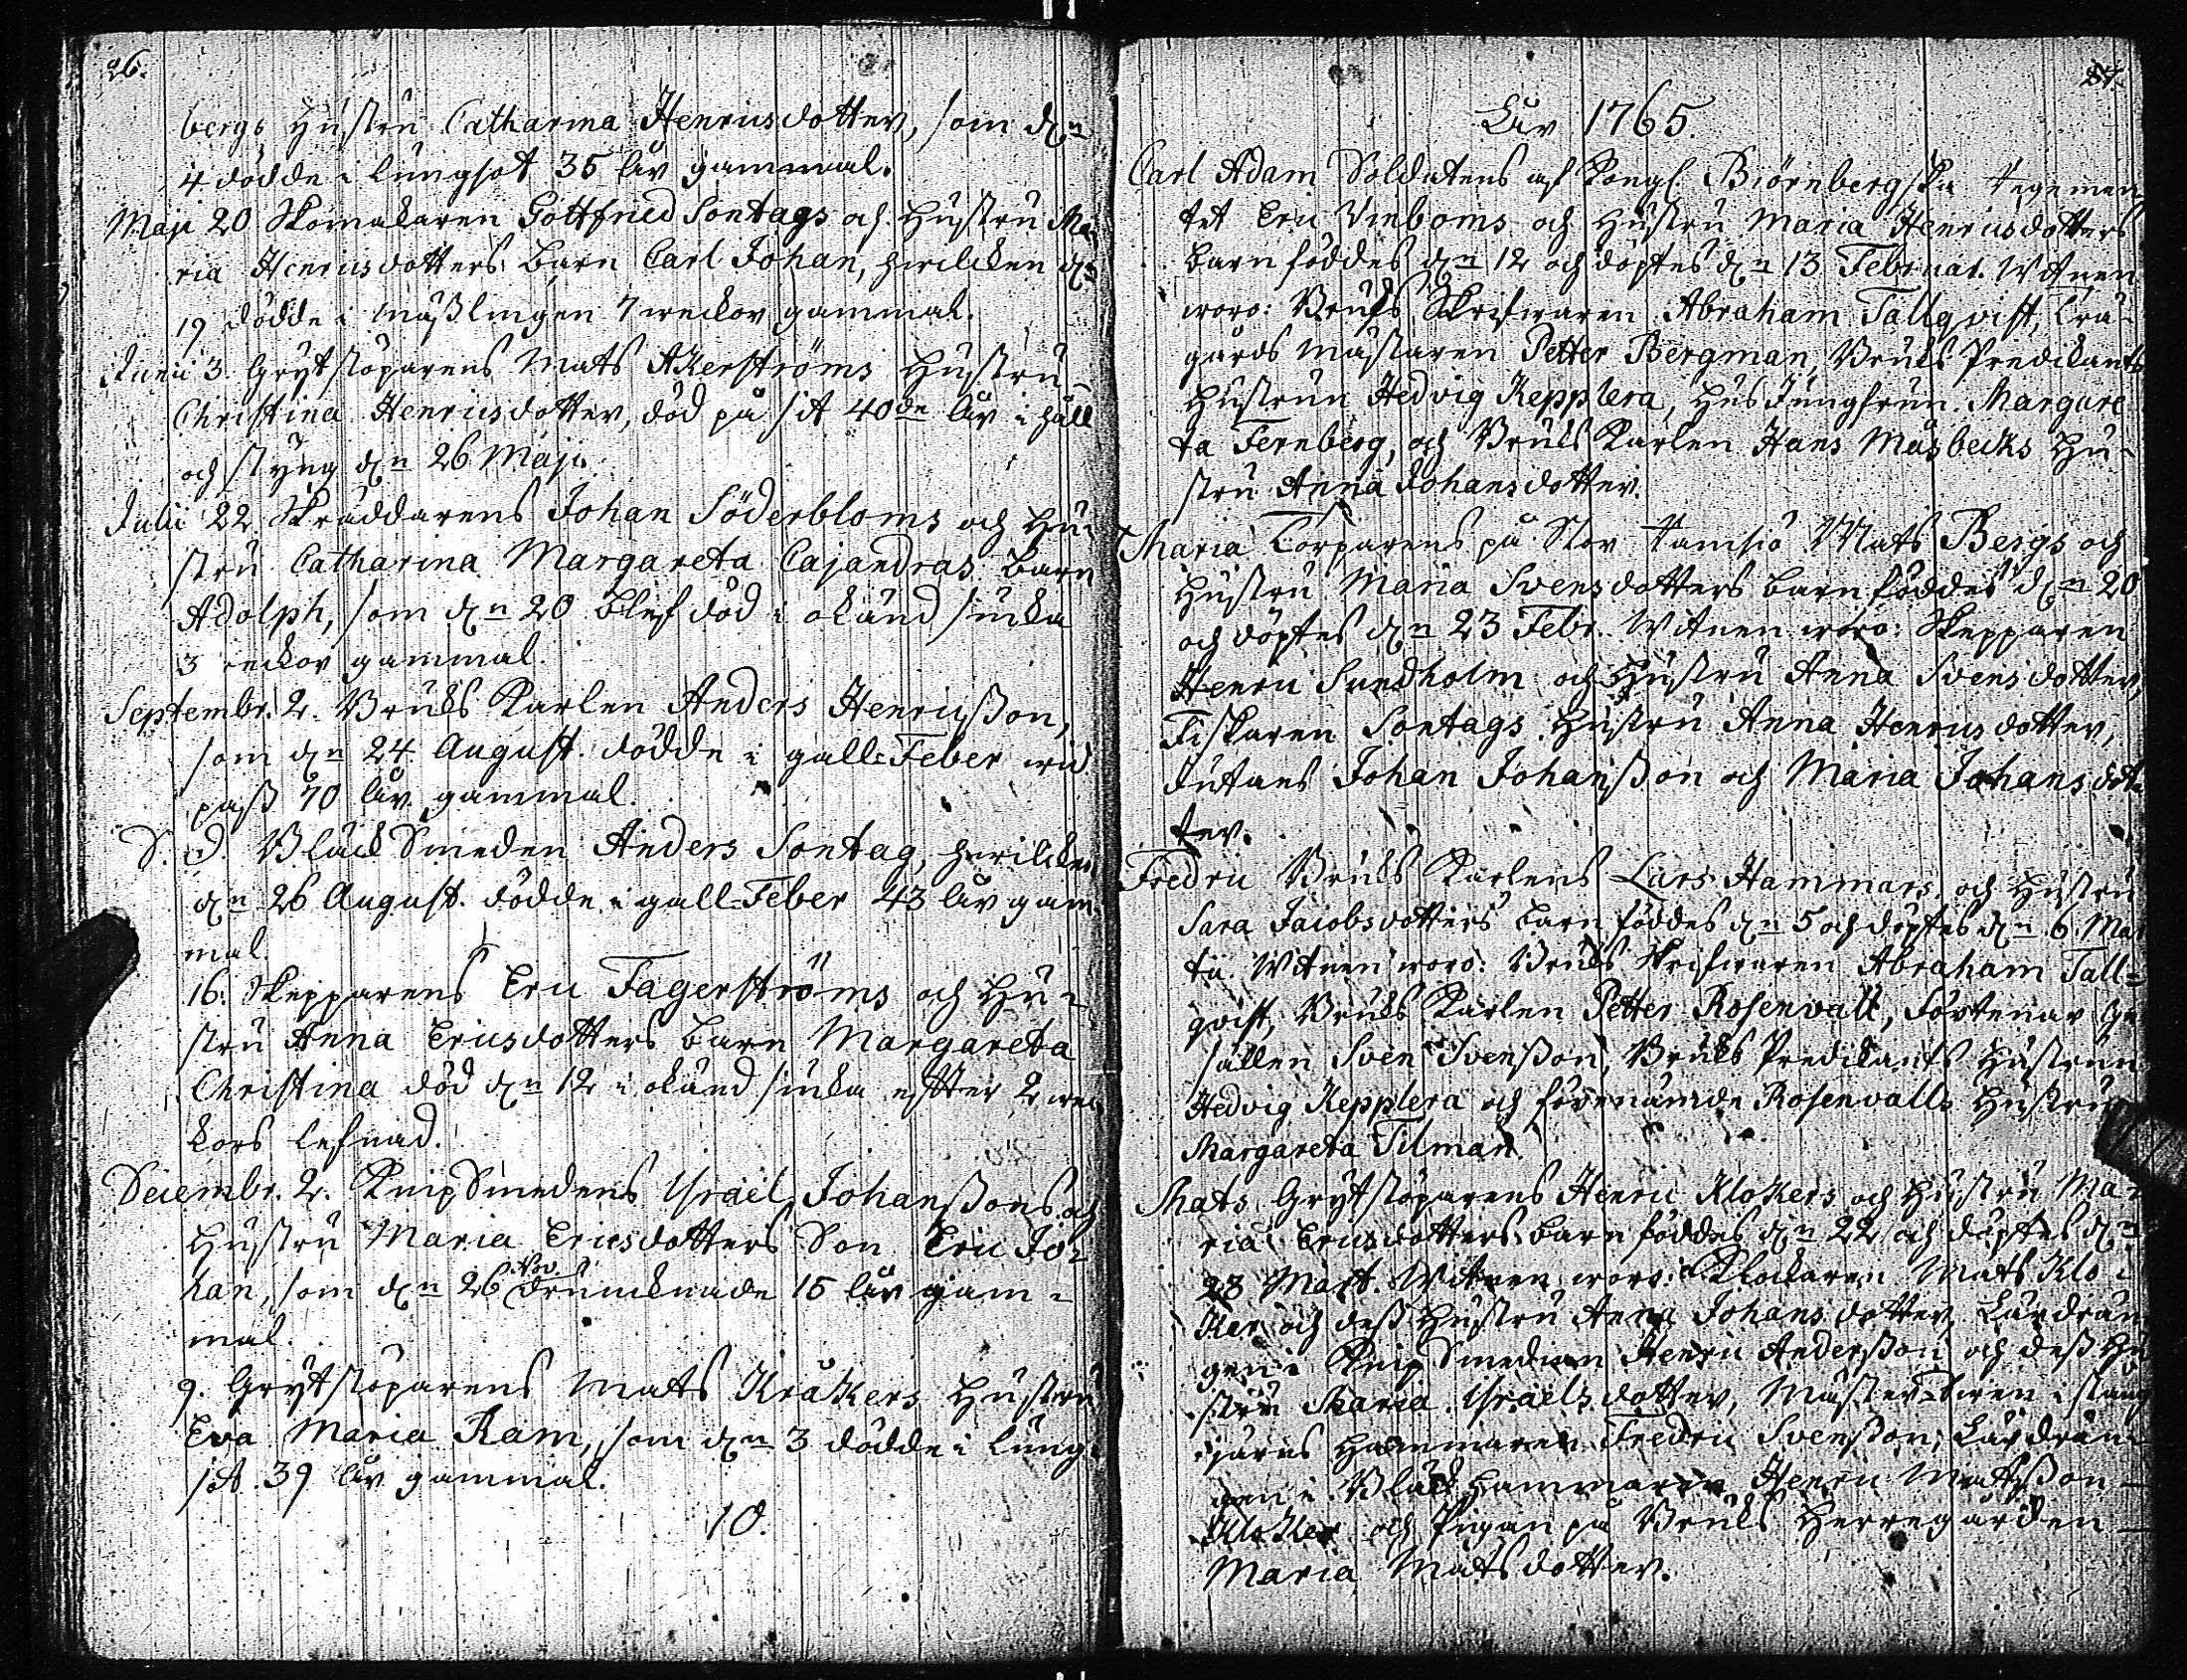 26.
bergs Hustru Catharina Henricsdotter, som d.n
4 dödde i lungsot 35 åhr gammal.
Maji 20 Skomakaren Gottfried Sontags och Hustru Ma
ria Henricsdotters barn Carl Johan, hwilcken d.n
19 dödde i mäßlingen 7 weckor gammal.
Junii 3. Grytstöparens Mats Åkerströms Hustru
Christina Henricsdotter, död på sit 40de åhr i håll
och styng d.n 26 Maji.
Julii 22 Skräddarens Johan Söderbloms och Hu-
stru Catharina Margareta Cajandras barn
Adolph, som d.n 20 blef död i okänd siuka
3 weckor gammal.
Septembr. 2. Bruks Karlen Anders Henricßon,
som d.n 24 August. dödde i gall-Feber wid
paß 70 åhr gammal.
S. D. Bläck Smeden Anders Sontag, hwilcken
d.n 26 August. dödde i gall-Feber 43 åhr gam-
mal.
16. Skepparens Eric Fagerströms och Hu-
stru Anna Ericsdotters barn Margareta
Christina död d.n 12 i okänd siuka efter 2 wec
kors lefnad.
Decembr. 2. Knip Smedens Israel Johanßons och
Hustru Maria Ericsdotters Son Eric Jo-
han, som d.n 26 Nov. drunknade 15 åhr gam-
mal.
9. Grytstöparens Mats Kråkers Hustru
Eva Maria Ram, som d.n 3 dödde i lung-
sot 39 åhr gammal.
10.
27.
Åhr 1765.
Carl Adam Soldatens af Kongl. Biörnbergska Regemen
tet Eric Vinboms och Hustru Maria Henricsdotters
barn föddes d.n 12 och döptes d.n 13 Februar. Witnen
woro: Bruks Skrifwaren Abraham Tallqvist, Trä-
gårds Mästaren Petter Bergman, Bruks Predikants
Hustrun Hedvig Kepplera, Hus Jungfrun Margare
ta Fernberg, och Bruks Karlen Hans Måsbecks Hu-
stru Anna Johansdotter.
Maria Torparens på Stor Ramsiö Mats Bergs och
Hustru Maria Svensdotters barn föddes d.n 20
och döptes d.n 23 Febr. Witnen woro: Skepparen
Henric Sundholm och Hustru Anna Svensdotter,
Fiskaren Sontags Hustru Anna Henricsdotter,
Johan Johanßon och Maria Johansdot-
ter.
Fredric Bruks Karlens Lars Hammars och Hustru
Sara Jacobsdotters barn föddes d.n 5 och döptes d.n 6 Mar
tii. Witnen woro: Bruks Skrifwaren Abraham Tall-
qvist, Bruks Karlen Petter Rosenvall, Förtenar Ge
sällen Sven Svenßon, Bruks Predikants Hustrun
Hedvig Kepplera och förenämde Rosenvalls Hustru
Margareta Tilman.
Mats Grytstöparens Henric Klokers och Hustru Ma-
ria Ericsdotters barn föddes d.n 22 och döptes d.n
23 Mart. Witnen woro: Klockaren Mats Klo-
ker och deß Hustru Anna Johansdotter, Lärdrän
gen i Knip Smedian Henric Anderßon och deß Hu
stru Maria Israelsdotter, Mäster Swen i stång
järns Hammaren Fredric Svenßon, Lärdrän-
gen i Bläck Hammaren Henric Matsßon
Kloker och Pigan på Bruks Herregården
Maria Matsdotter.